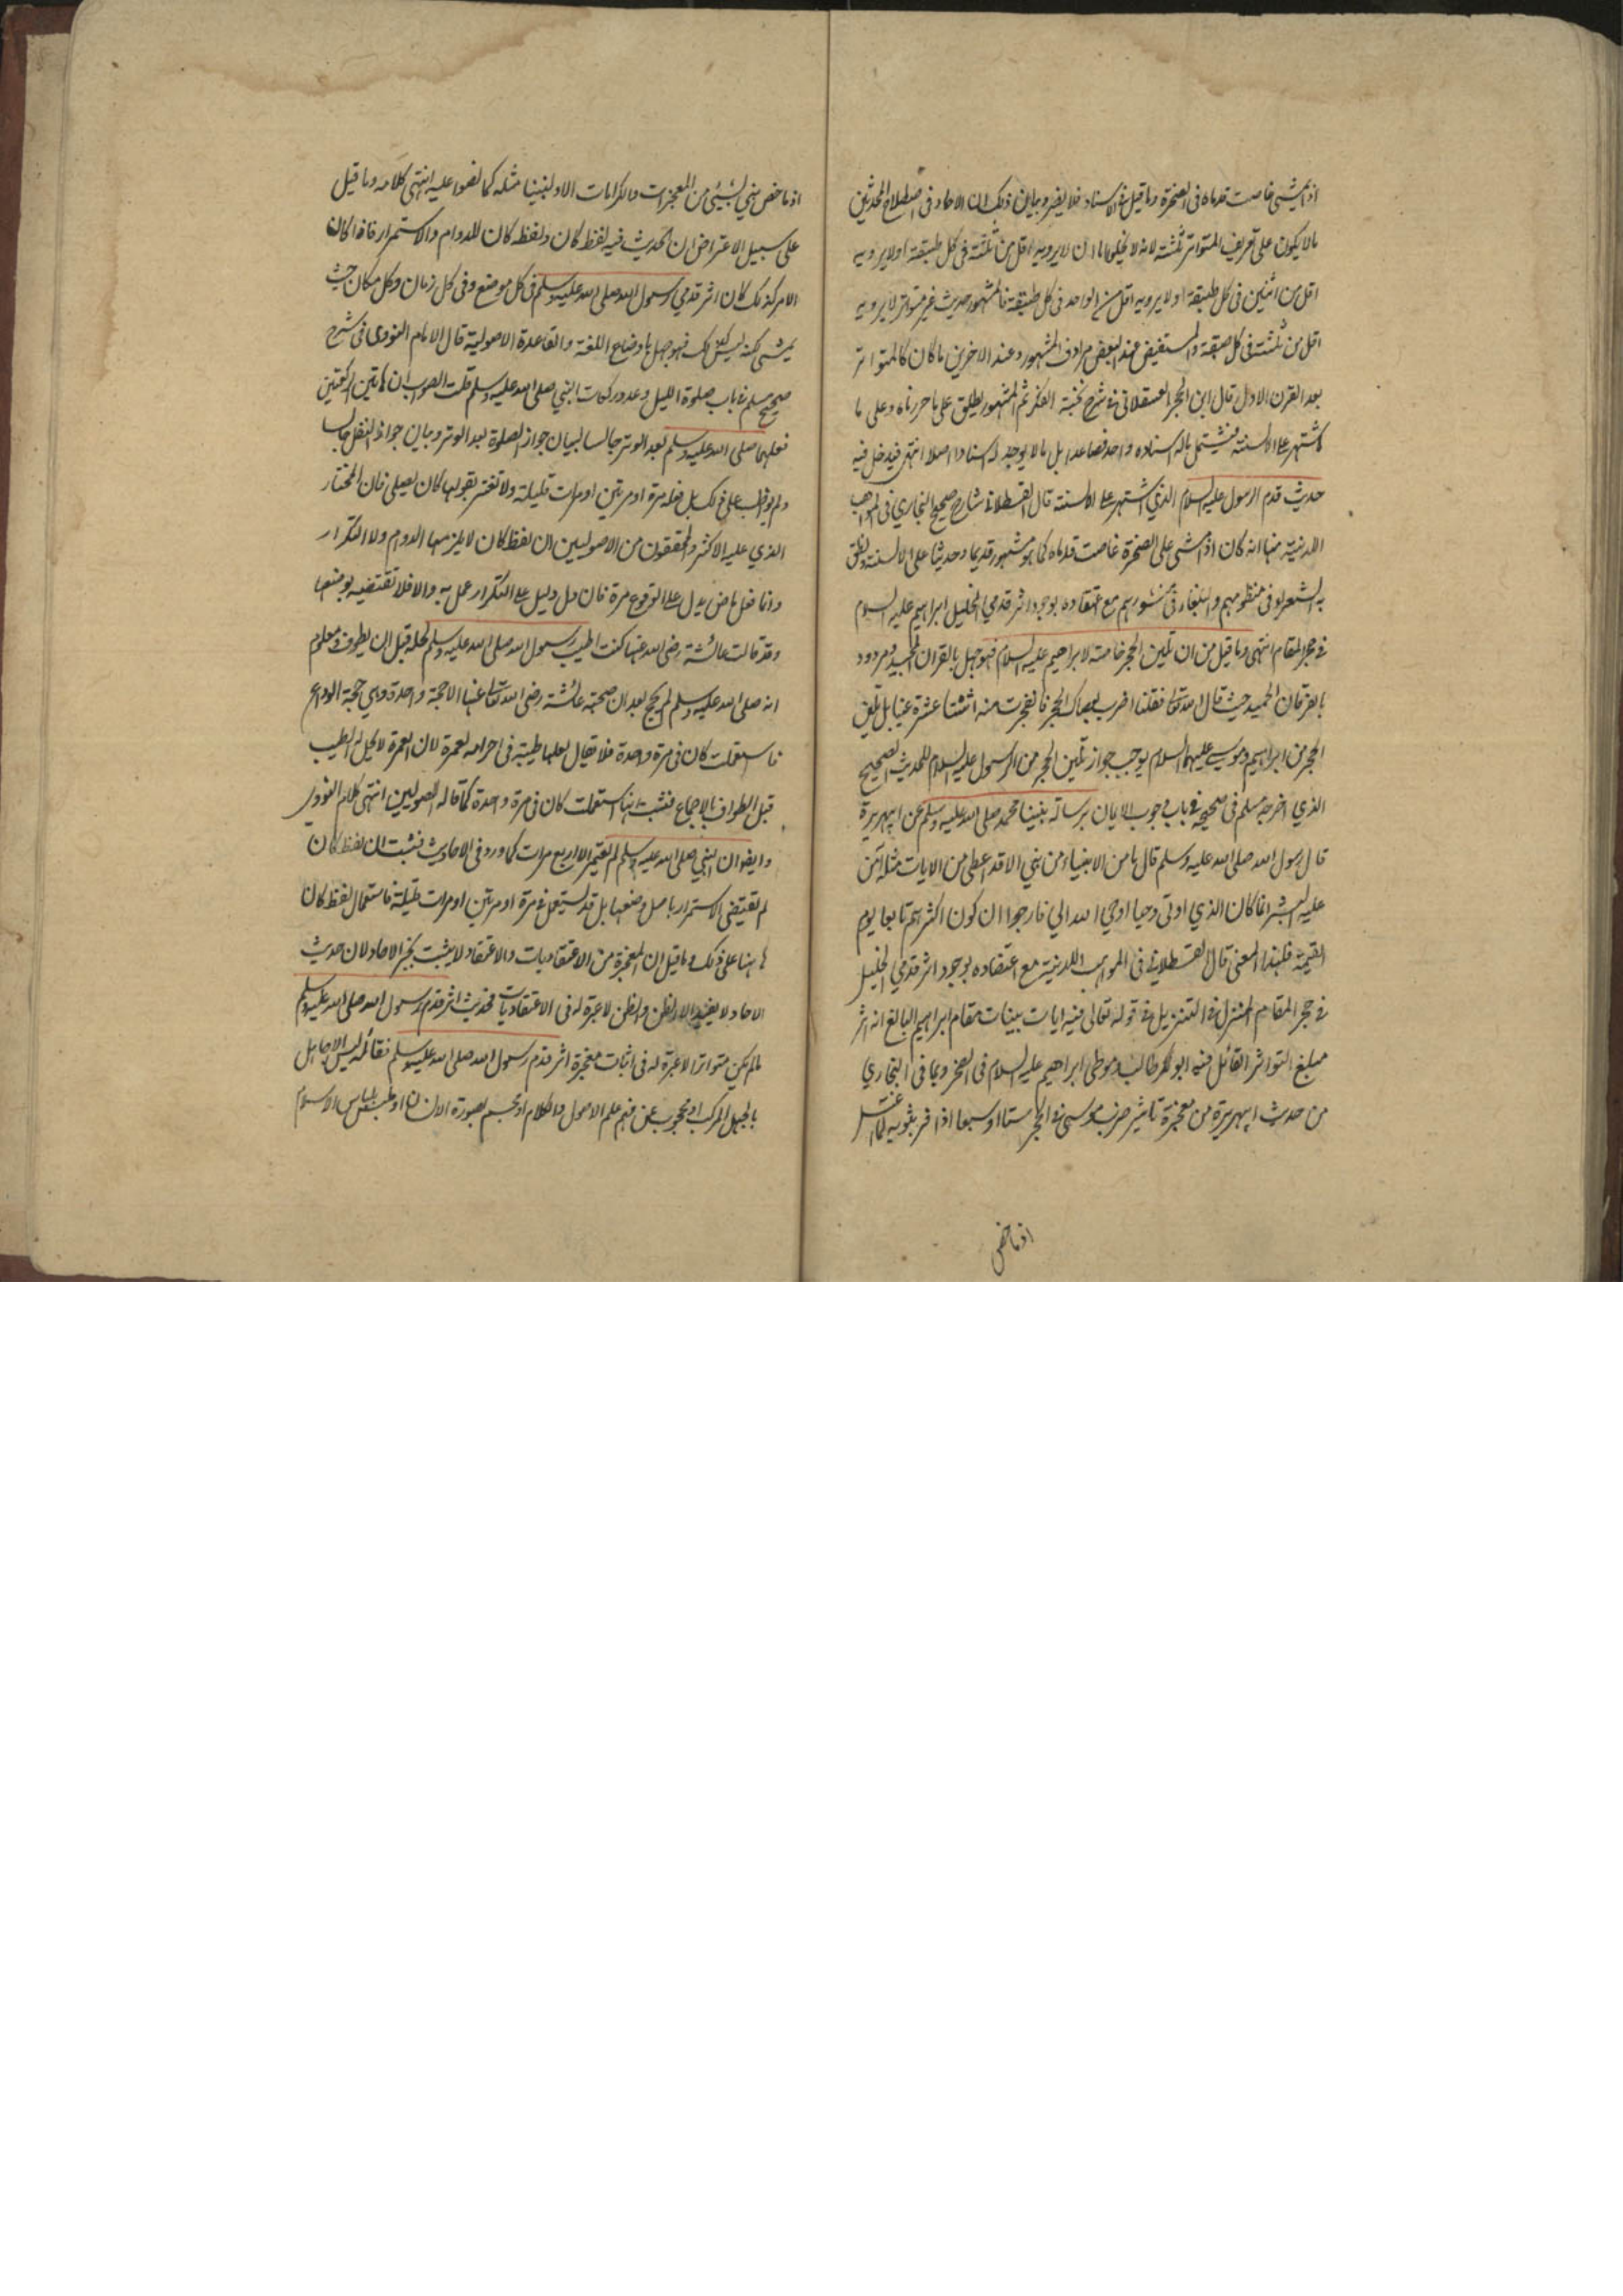 اذا مشى غاصت قدماه فى الصخرة وما قيل فى الاسناد فلا يضر وبيان ذلك ان الاحاد فى اصطلاح المحدثين
مالا يكون على تعريف المتواتر ثلثته لانه لا يخلو اما ان لا يرويه اقل من ثلثة فى كل طبقة او لا يرويه
اقل من اثنين فى كل طبقة او لا يرويه اقل من الواحد فى كل طبقة فالمشهور حديث غير متواتر لا يرويه
اقل من ثلثة فى كل طبقة والمستفيض عند البعض مرادف المشهور وعند الاخرين ما كان كالمتواتر
بعد القرن الاول قال ابن الحجر العسقلانى فى شرح نخبة الفكر ثم المشهور يطلق على ما حررناه وعلى ما
اشتهر على الالسنة فيشتمل ماله اسناده واحد فصاعدا بل مالا يوجد له اسناد اصلا انتهى فيدخل فيه
حديث قدم الرسول عليه السلام الذي اشتهر على الالسنة قال القسطلانى شارح صحيح البخاري فى المواهب
اللدنية منها انه كان اذا مشى على الصخرة غاصت قدماه كما هو مشهور قديما وحديثا على الالسنة ونطق
به الشعراء فى منظومهم والبلغاء فى منثورهم مع اعتقاده بوجود اثر قدمي الخليل ابراهيم عليه السلام
فى حجر المقام انتهى وما قيل من ان تليين الحجر خاصته لابراهيم عليه السلام فهو جهل بالقران المجيد ومردود
بالفرقان الحميد حيث قال الله تعالى فقلنا اضرب بعصاك الحجر فانفجرت منه اثنتا عشرة عينا بل تليين
الحجر من ابراهيم وموسى عليهما السلام يوجب جواز تليين الحجر من الرسول عليه السلام للحديث الصحيح
الذي اخرجه مسلم فى صحيحه فى باب وجوب الايمان برسالة نبينا محمد صلى الله عليه وسلم عن ابيهريرة
قال رسول الله صلى الله عليه وسلم قال ما من الانبياء من نبي الا قد اعطى من الايات مثله آمن
عليه البشر انما كان الذي اوتى وحيا اوحي الله الي فارجوا ان كون اكثرهم تابعا يوم
القيمة فلهذا المعنى قال القسطلانى فى المواهب اللدنية مع اعتقاده بوجود اثر قدمي الخليل
فى حجر المقام المنزل فى التنزيل فى قوله تعالى فيه ايات بينات مقام ابراهيم البالغ انه اثر
مبلغ التواتر القائل فيه ابو طالب وموطى ابراهيم عليه السلام فى الصخر وبما فى البخاري
من حديث ابيهريرة من معجزة تاثير ضرب موسى فى الحجر ستا او سبعا اذا فر بثوبه لما اغتسل
اذ ما خص
اذ ما خص نبي بشيئ من المعجزات والكرامات الا ولنبينا مثله كما نصوا عليه انتهى كلامه وما قيل
على سبيل الاعتراض ان الحديث فيه لفظ كان ولفظه كان للدوام والاستمرار فاذا كان
الامر كذلك كان اثر قدمي رسول الله صلى الله عليه وسلم فى كل موضع وفى كل زمان وكل مكان حيث
يمشى لكنه ليس كذلك فهو جهل باوضاع اللغة والقاعدة الاصولية قال الامام النووى فى شرح
صحيح مسلم فى باب صلوة الليل وعدد ركعات النبي صلى الله عليه وسلم قلت الصواب ان هاتين الركعتين
فعلهما صلى الله عليه وسلم بعد الوتر جالسا لبيان جواز الصلوة بعد الوتر وبيان جواز النفل جالسا
ولم يواظب على ذلك بل فعله مرة او مرتين او مرات قليلة ولا تغتر بقولها كان يصلى فان المختار
الذي عليه الاكثر والمحققون من الاصوليين ان لفظ كان لا يلزمها الدوام ولا التكرار
وانما فعل ماض يدل على الوقوع مرة فان دل دليل على التكرار عمل به والا فلا تقتضيه بوضعها
وقد قالت عائشة رضى الله عنها كنت اطيب رسول الله صلى الله عليه وسلم لحله قبل ان يطوف ومعلوم
انه صلى الله عليه وسلم لم يحج بعد ان صحبته عائشة رضى الله تعالى عنها الا حجة واحدة وهي حجة الوداع
فاستعملت كان فى مرة واحدة فلا يقال لعلها طيبته فى احرامه لعمرة لان العمرة لا يحل له الطيب
قبل الطواف بالاجماع فثبت انها استعملت كان فى مرة واحدة كما قاله الاصوليين انتهى كلام النووى
وايضا ان النبي صلى الله عليه وسلم لم يعتمر الا اربع مرات كما ورد فى الاحاديث فثبت ان لفظ كان
لم تقتضى الاستمرار باصل وضعها بل قد يستعمل فى مرة او مرتين او مرات قليلة فاستعمال لفظ كان
ها هنا على ذلك وما قيل ان المعجزة من الاعتقاديات والاعتقاد لا يثبت بخبر الاحاد لان حديث
الاحاد لا يفيد الا الظن والظن لا عبرة له فى الاعتقاديات فحديث اثر قدم رسول الله صلى الله عليه وسلم
ما لم يكن متواترا لا عبرة له فى اثبات معجزة اثر قدم رسول الله صلى الله عليه وسلم فقائله ليس الا جاهل
بالجهل المركب او محجوب عن فهم علم الاصول والكلام او مجسم بصورة الانسان او ملبس بلباس الاسلام